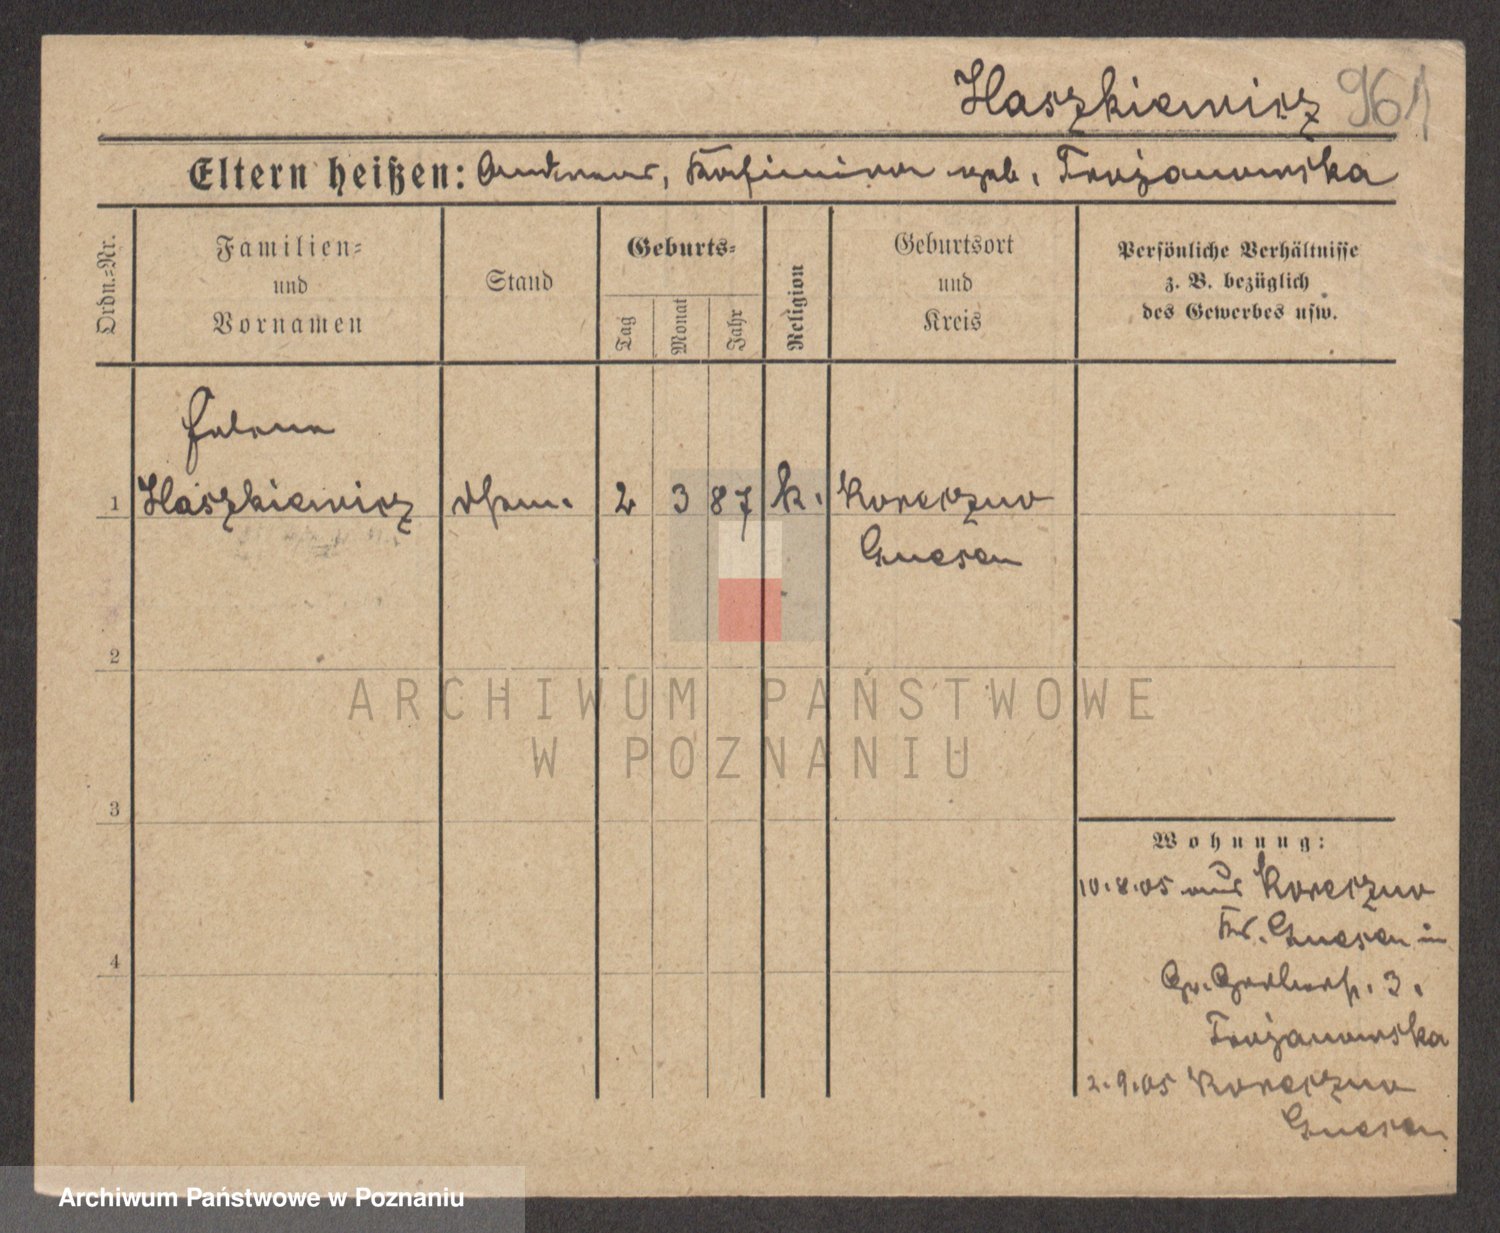 Haszkiewicz 961
Eltern heißen: Andreas, Kasimira geb. Trojanowska
Ordn.=Nr.
Familien=
und
Vornamen
Stand
Geburts=
Tag
Monat
Jahr
Religion
Geburtsort
und
Kreis
Persönliche Verhältnisse
z. B. bezüglich
des Gewerbes usw.
Helena
1 Haszkiewicz 2 3 87 k.
Gnesen
2
ARCHIWUM PAŃSTWOWE
W POZNANIU
3
Wohnung:
10.8.05 aus
Kr. Gnesen in
Gr. Gerberstr. 3.
4
Trojanowska
2.9.05
Gnesen
Archiwum Państwowe w Poznaniu